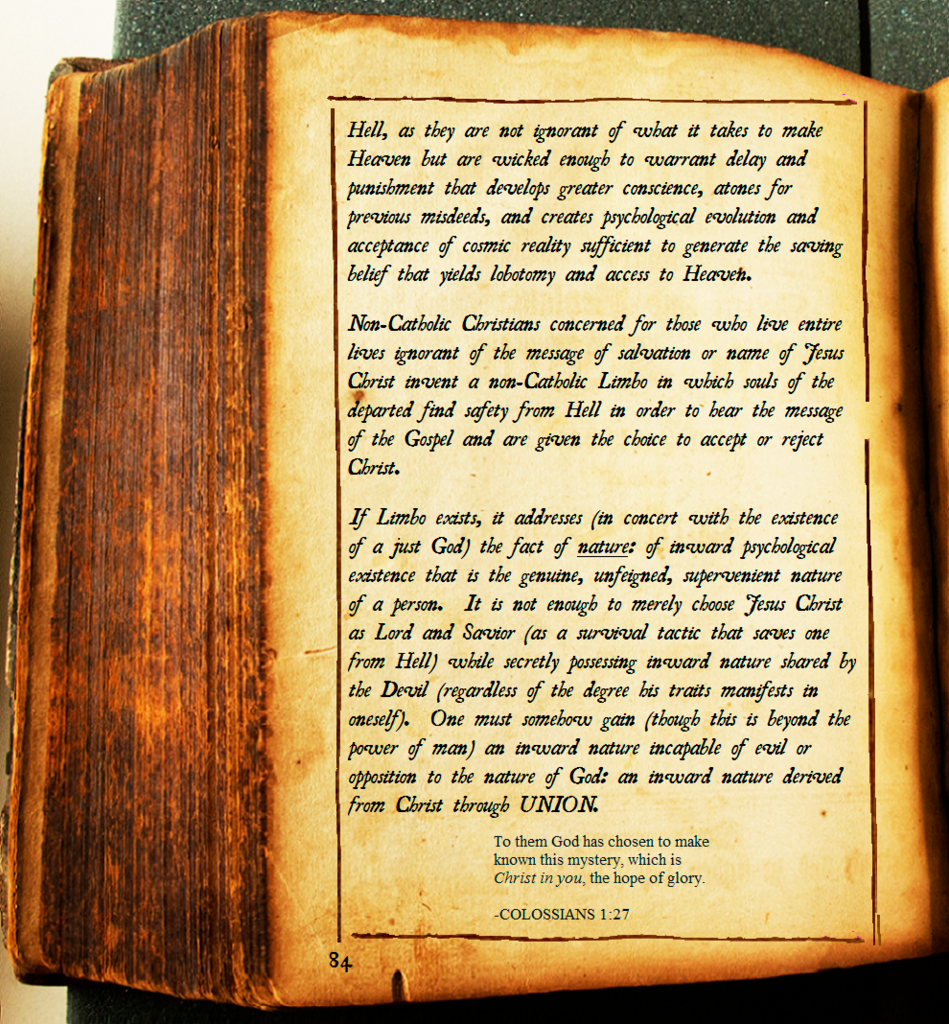 Hell, as they are not ignorant of what it takes to make
Heaven but are wicked enough to warrant delay and
punishment that develops greater conscience, atones for
previous misdeeds, and creates psychological evolution and
acceptance of cosmic reality sufficient to generate the saving
belief that yields lobotomy and access to Heaven.
Non-Catholic Christians concerned for those who live entire
lives ignorant of the message of salvation or name of Jesus
Christ invent a non-Catholic Limbo in which souls of the
departed find safety from Hell in order to hear the message
of the Gospel and are given the choice to accept or reject
Christ.
If Limbo exists, it addresses (in concert with the existence
of a just God) the fact of nature: of inward psychological
existence that is the genuine, unfeigned, supervenient nature
of a person. It is not enough to merely choose Jesus Christ
as Lord and Savior (as a survival tactic that saves one
from Hell) while secretly possessing inward nature shared by
the Devil (regardless of the degree his traits manifests in
oneself). One must somehow gain (though this is beyond the
power of man) an inward nature incapable of evil or
opposition to the nature of God: an inward nature derived
from Christ through UNION.
To them God has chosen to make
known this mystery, which is
Christ in you, the hope of glory.
-COLOSSIANS 1:27
84